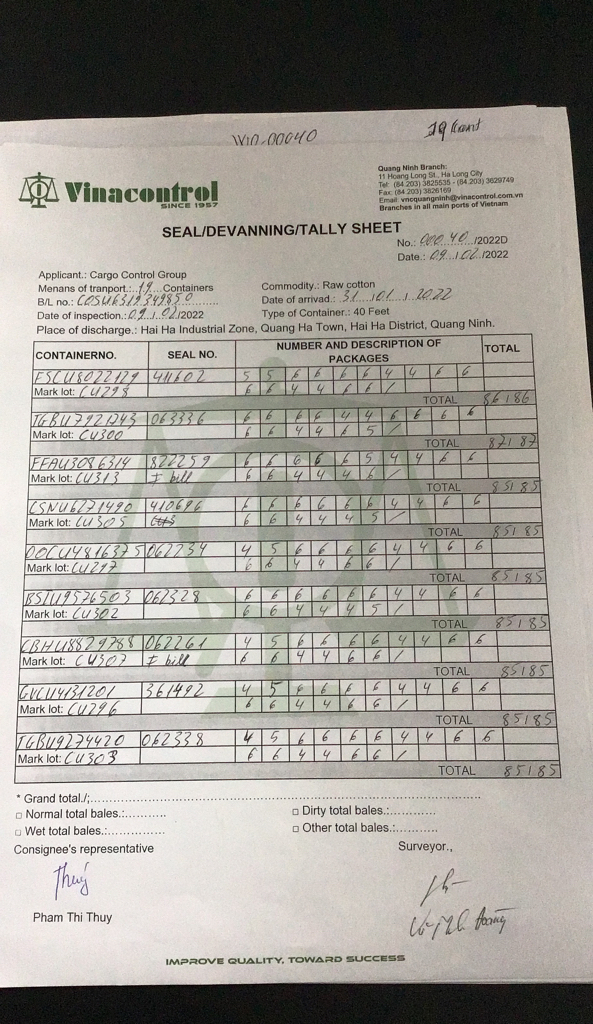 WID-00040
Quang Ninh Branch:
11 Hoang Long St., Ha Long City
Tel: (84.203) 3825535 - (84.203) 3829749
Fax: (84 203) 3826169
Email: vncquangninh@vinacontrol.com.vn
Branches in all main ports of Vietnam
Vinacontrol
SINCE 1957
SEAL/DEVANNING/TALLY SHEET
No.: 000 40 /2022D
Date.: 09 / 02 /2022
Applicant.: Cargo Control Group
Menans of tranport.: 19 Containers
Commodity.: Raw cotton
B/L no.: COSU6319349850
Date of arrivad.: 31 / 01 / 2022
Date of inspection.: 09 / 02/2022
Type of Container.: 40 Feet
Place of discharge.: Hai Ha Industrial Zone, Quang Ha Town, Hai Ha District, Quang Ninh.
CONTAINERNO. SEAL NO. NUMBER AND DESCRIPTION OF PACKAGES TOTAL
FSCU8022129 411602 5 5 6 6 6 6 4 4 6 6
Mark lot: CU298 6 6 4 4 6 6 /
TOTAL 86 186
TGBU7921243 063336 6 6 6 6 4 4 6 6 6 6
Mark lot: CU300 6 6 4 4 6 5 /
TOTAL 87 187
FFAU3086314 822259 6 6 6 6 6 5 4 4 6 6
Mark lot: CU313 I bill 6 6 4 4 4 6 /
TOTAL 85 185
CSNU6271490 410696 6 6 6 6 6 6 4 4 6 6
Mark lot: CU305 6 6 4 4 4 5 /
TOTAL 85 185
OOCU4816375 062234 4 5 6 6 6 6 4 4 6 6
Mark lot: CU297 6 6 4 4 6 6 /
TOTAL 85 185
BSIU9576503 061328 6 6 6 6 6 6 4 4 6 6
Mark lot: CU302 6 6 4 4 4 5 /
TOTAL 85 185
CBHU8829788 062261 4 5 6 6 6 6 4 4 6 6
Mark lot: CU307 I bill 6 6 4 4 6 6 /
TOTAL 85 185
GVCU4131201 361492 4 5 6 6 6 6 4 4 6 6
Mark lot: CU296 6 6 4 4 6 6 /
TOTAL 85 185
TGBU9274420 062338 4 5 6 6 6 6 4 4 6 6
Mark lot: CU303 6 6 4 4 6 6 /
TOTAL 85 185
* Grand total./;
□ Normal total bales.:
□ Dirty total bales.:
□ Wet total bales.:
□ Other total bales.:
Consignee's representative
Surveyor.,
Thuý
Pham Thi Thuy
IMPROVE QUALITY, TOWARD SUCCESS